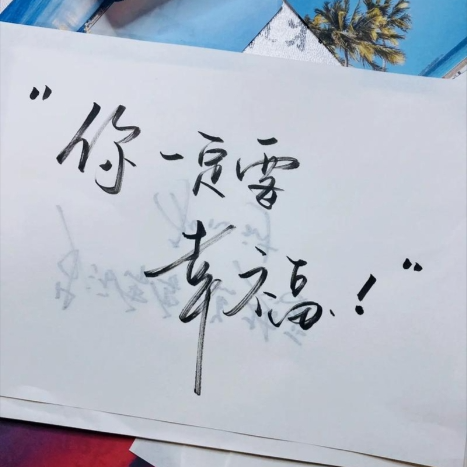 “你一定要
幸福！”